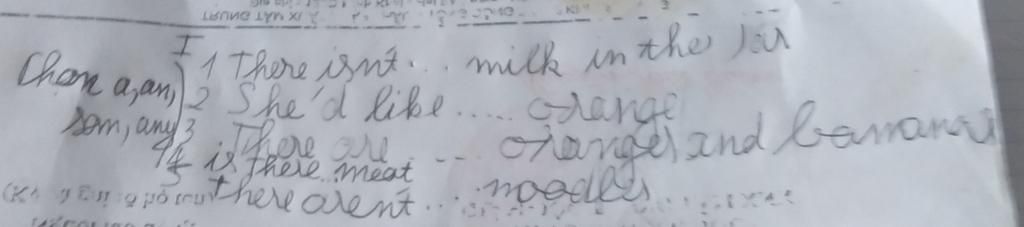 I
Chọn a, an,
som, any
1 There isn't... milk in the jar
2 She'd like ..... orange
3 There are ... oranges and bananas
4 is there meat
5 there aren't ... noodles